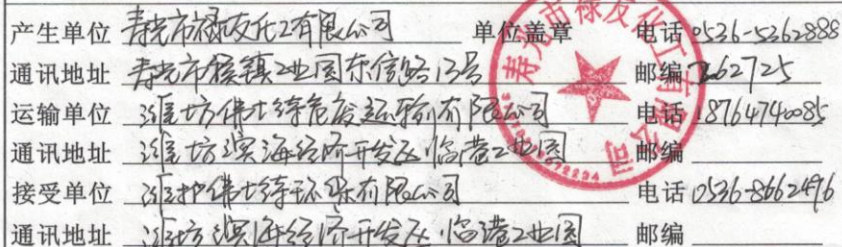 产生单位 寿光市禄友化工有限公司 单位盖章 电话 0536-5362888
通讯地址 寿光市侯镇工业园东信路13号 邮编 262725
运输单位 潍坊佛士特危废运输有限公司 电话 18764740085
通讯地址 潍坊滨海经济开发区临港工业园 邮编
接受单位 潍坊佛士特环保有限公司 电话 0536-8662496
通讯地址 潍坊滨海经济开发区临港工业园 邮编
寿光市禄友化工有限公司